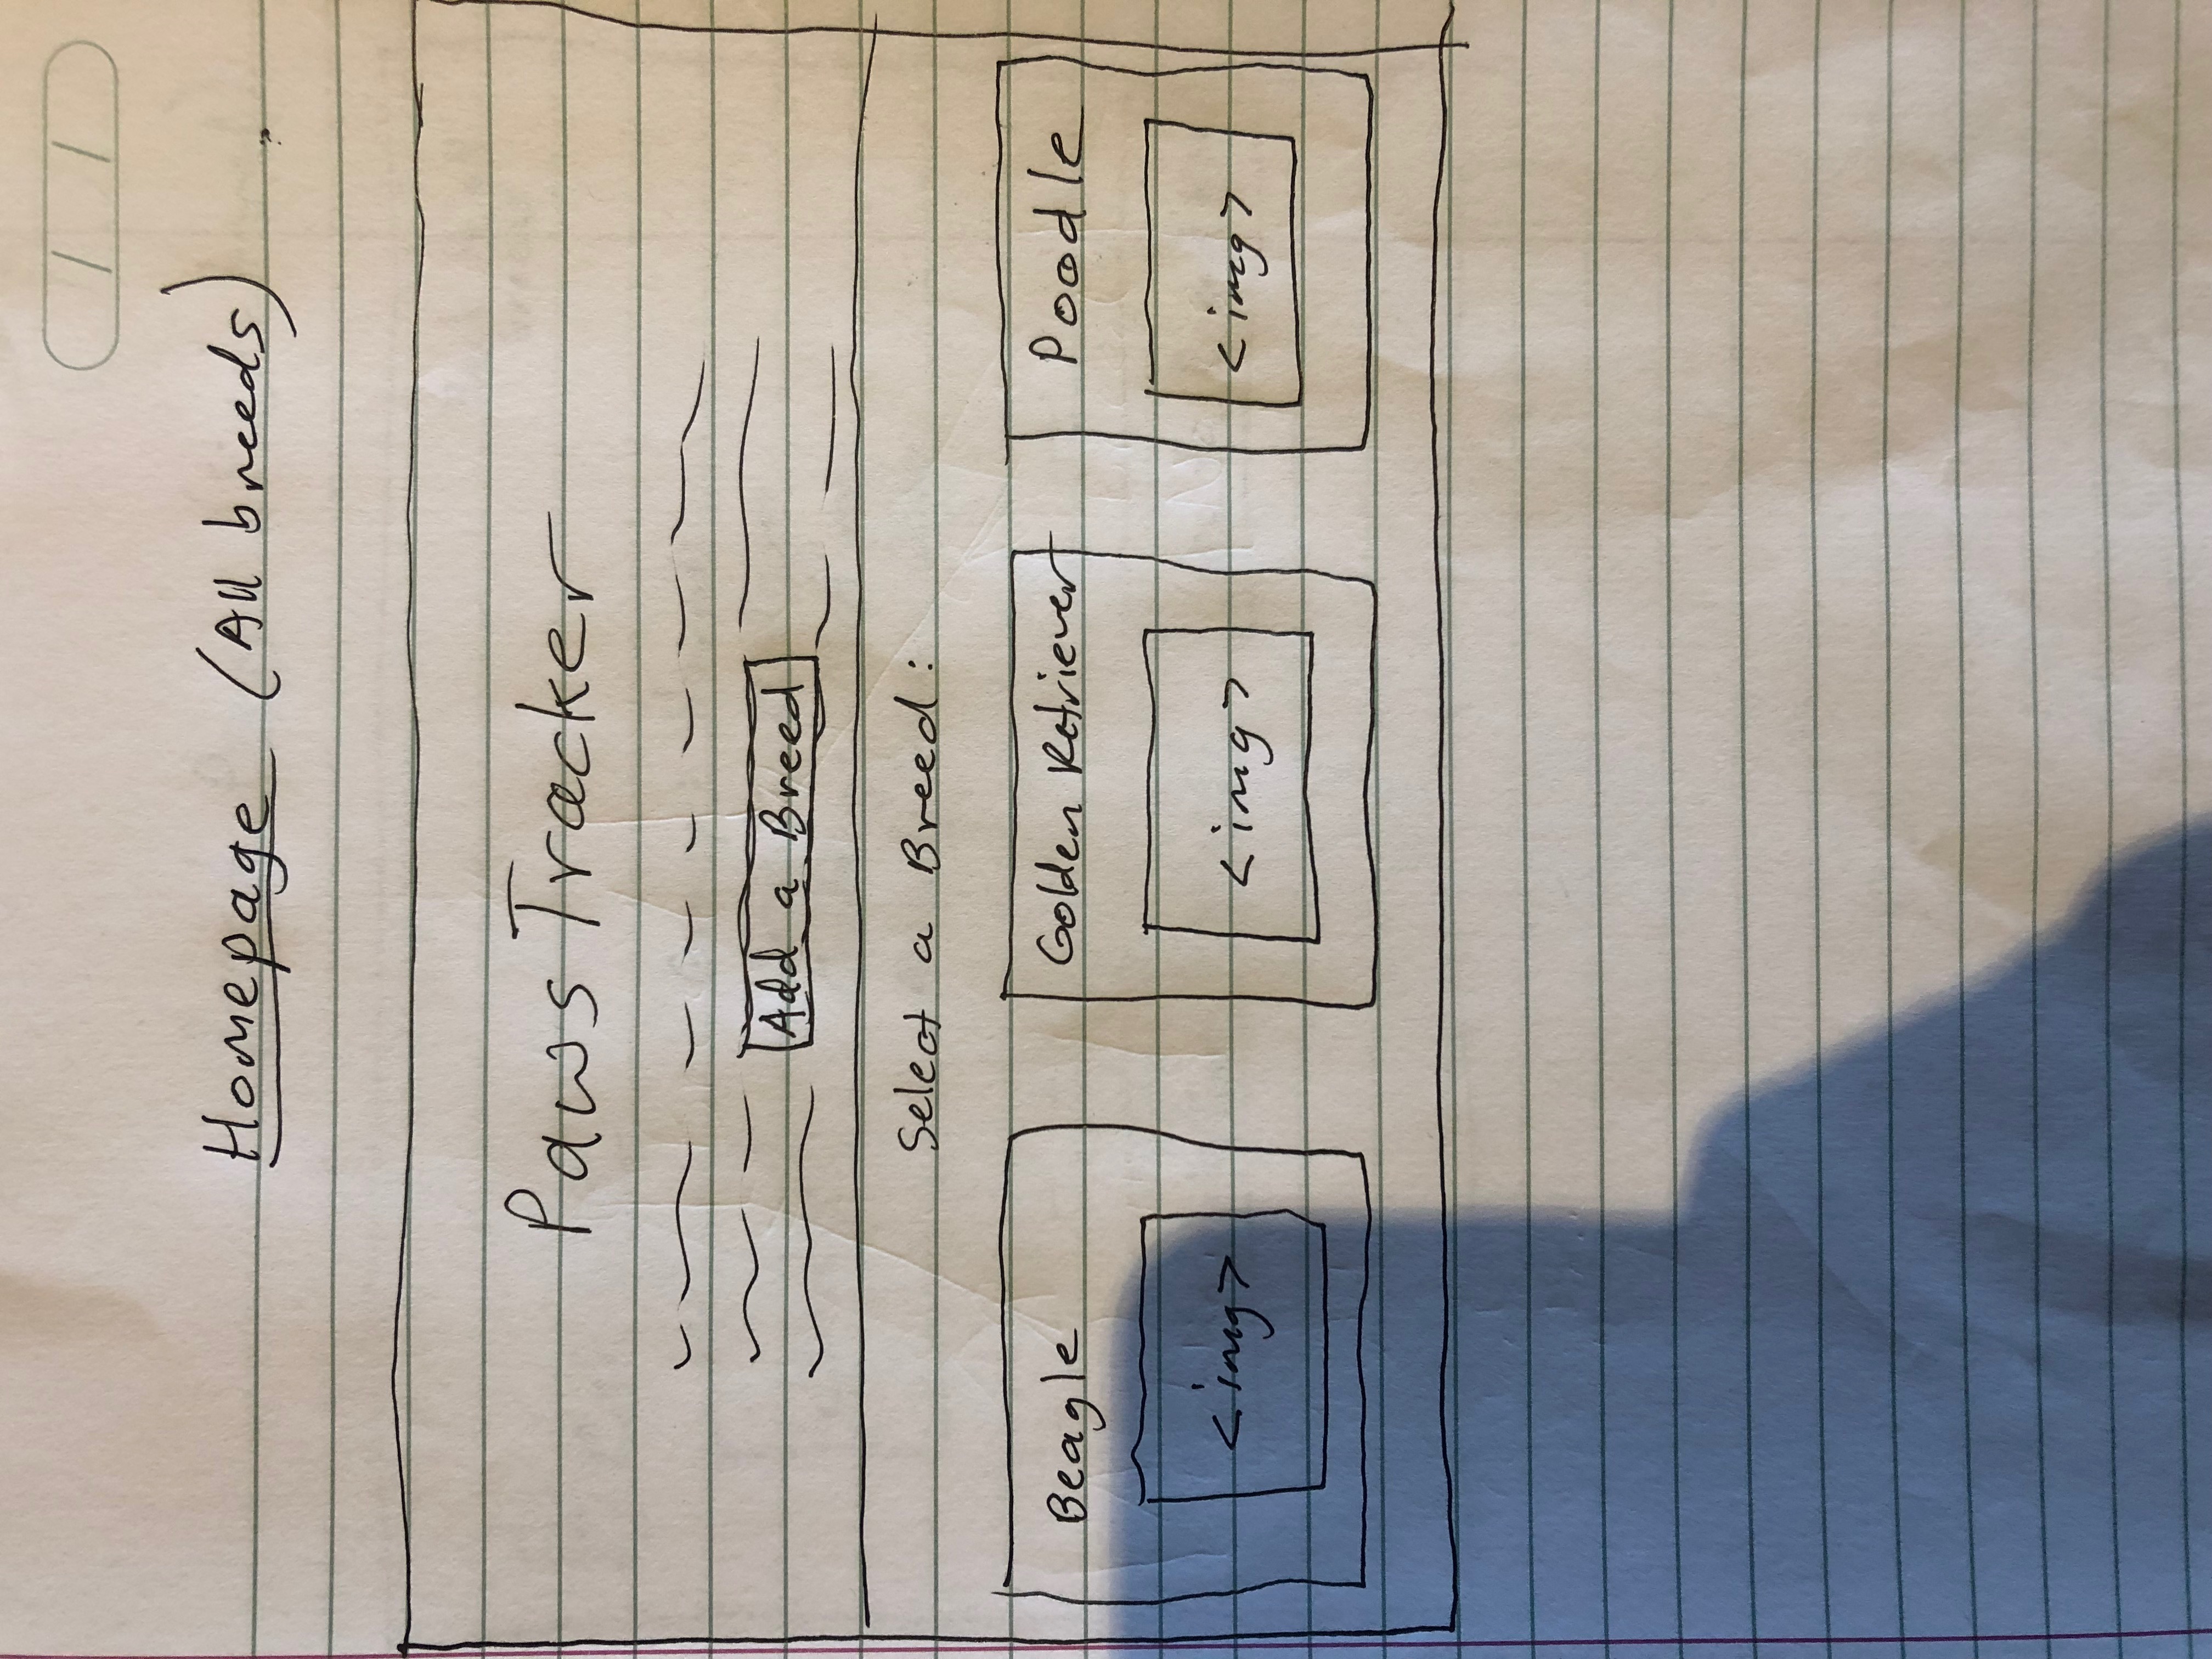 Homepage (All breeds)
Paws Tracker
Add a Breed
Select a Breed:
Beagle
Golden Retriever
Poodle
<img>
<img>
<img>